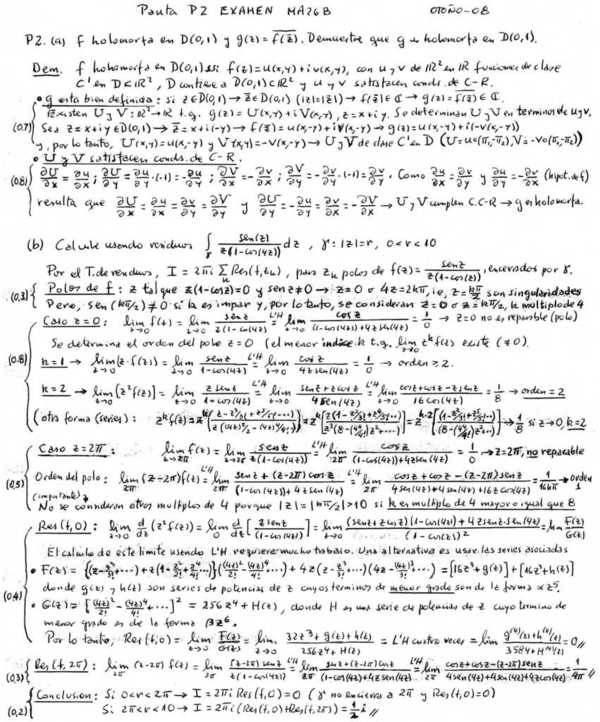 Pauta P2 EXAMEN MA26B OTOÑO-08
P2. (a) f holomorfa en D(0,1) y g(z) = \overline{f(\bar{z})}. Demuestre que g es holomorfa en D(0,1).
Dem. f holomorfa en D(0,1) ssi f(z)=u(x,y)+iv(x,y), con u y v de IR² en IR funciones de clase
C¹ en D⊂IR², D contiene a D(0,1)⊂IR² y u y v satisfacen conds. de C-R.
• g esta bien definida: si z∈D(0,1) → z̄∈D(0,1) (|z|=|z̄|) → f(z̄)∈ℂ → g(z)=\overline{f(z̄)}∈ℂ.
Existen U y V: IR²→IR t.q. g(z)=U(x,y)+iV(x,y), z=x+iy. Se determinan U y V en terminos de u y v.
(0,7) Sea z=x+iy∈D(0,1) → z̄=x+i(-y) → f(z̄)=u(x,-y)+iv(x,-y) → g(z)=u(x,-y)+i(-v(x,-y))
y, por lo tanto, U(x,y)=u(x,-y) y V(x,y)=-v(x,-y) → U y V de clase C¹ en D
• U y V satisfacen conds. de C-R.
(0,8) ∂U/∂x = ∂u/∂x ; ∂U/∂y = ∂u/∂y·(-1) = -∂u/∂y ; ∂V/∂x = -∂v/∂x ; ∂V/∂y = -∂v/∂y·(-1) = ∂v/∂y. Como ∂u/∂x = ∂v/∂y y ∂u/∂y = -∂v/∂x (hipot. de f)
resulta que ∂U/∂x = ∂u/∂x = ∂v/∂y = ∂V/∂y y ∂U/∂y = -∂u/∂y = ∂v/∂x = -∂V/∂x → U y V cumplen C.C-R → g es holomorfa.
(b) Calcule usando residuos ∫_γ sen(z)/(z(1-cos(4z))) dz , γ: |z|=r, 0<r<10
Por el T. de residuos, I = 2πi Σ Res(f,z_k), para z_k polos de f(z) = senz/(z(1-cos(4z))), encerrados por γ.
(0,3) Polos de f: z tal que z(1-cos4z)=0 y senz≠0 → z=0 o 4z=2kπ, ie, z=kπ/2 son singularidades
Pero, sen(kπ/2)≠0 si k es impar y, por lo tanto, se consideran z=0 o z=kπ/2, k multiplo de 4
Caso z=0: lim_{z→0} f(z) = lim_{z→0} senz/(z(1-cos4z)) =^{L'H} lim_{z→0} cosz/((1-cos(4z))+4z sen(4z)) = 1/0 → z=0 no es reparable (polo)
Se determina el orden del polo z=0 (el menor indice k t.q. lim_{z→0} z^k f(z) existe (≠0).
(0.8) k=1 → lim_{z→0}(z·f(z)) = lim_{z→0} senz/(1-cos(4z)) =^{L'H} lim_{z→0} cosz/(4 sen(4z)) = 1/0 → orden ≥ 2.
k=2 → lim_{z→0}[z²f(z)] = lim_{z→0} z senz/(1-cos(4z)) =^{L'H} lim_{z→0} (senz+zcosz)/(4 sen(4z)) =^{L'H} lim_{z→0} (cosz+cosz-z senz)/(16 cos(4z)) = 1/8 → orden = 2
Caso z=2π: lim_{z→2π} f(z) = lim_{z→2π} senz/(z(1-cos(4z))) =^{L'H} lim_{z→2π} cosz/((1-cos(4z))+4z sen(4z)) = 1/0 → z=2π, no reparable
(0,5) Orden del polo: lim_{z→2π} (z-2π)f(z) =^{L'H} lim_{z→2π} (senz+(z-2π)cosz)/((1-cos(4z))+4z sen(4z)) =^{L'H} lim_{z→2π} (cosz+cosz-(z-2π)senz)/(4sen(4z)+4sen(4z)+16z cos(4z)) = 1/16π → orden 1
(importante)
No se consideran otros multiplos de 4 porque |z|=|kπ/2|>10 si k es multiplo de 4 mayor o igual que 8
Res(f,0): lim_{z→0} d/dz (z²f(z)) = lim_{z→0} d/dz [z senz/(1-cos(4z))] = lim_{z→0} ((senz+zcosz)(1-cos(4z))-4z senz sen(4z))/(1-cos(4z))² = lim F(z)/G(z)
El calculo de este limite usando L'H requiere mucho trabajo. Una alternativa es usar las series asociadas
(0,4) • F(z) = {(z-z³/3!+...)+z(1-z²/2!+z⁴/4!...)}{(4z)²/2!-(4z)⁴/4!+...}-4z(z-z³/3!...)(4z-(4z)³/3!...) = [16z³+g(z)]+[16z³+h(z)]
donde g(z) y h(z) son series de potencias de z cuyos terminos de menor grado son de la forma αz⁵.
• G(z) = [(4z)²/2!-(4z)⁴/4!+...]² = 256z⁴+H(z), donde H es una serie de potencias de z cuyo termino de
menor grado es de la forma βz⁶.
Por lo tanto, Res(f,0) = lim_{z→0} F(z)/G(z) = lim_{z→0} (32z³+g(z)+h(z))/(256z⁴+H(z)) = L'H cuatro veces = 0 //
(0,3) Res(f,2π): lim_{2π} (z-2π) f(z) = lim_{2π} (z-2π)senz/(z(1-cos(4z))) =^{L'H}
(0,2) Conclusion: Si 0<r<2π → I = 2πi Res(f,0) = 0 (γ no encierra a 2π y Res(f,0)=0)
Si 2π<r<10 → I = 2πi (Res(f,0)+Res(f,2π))